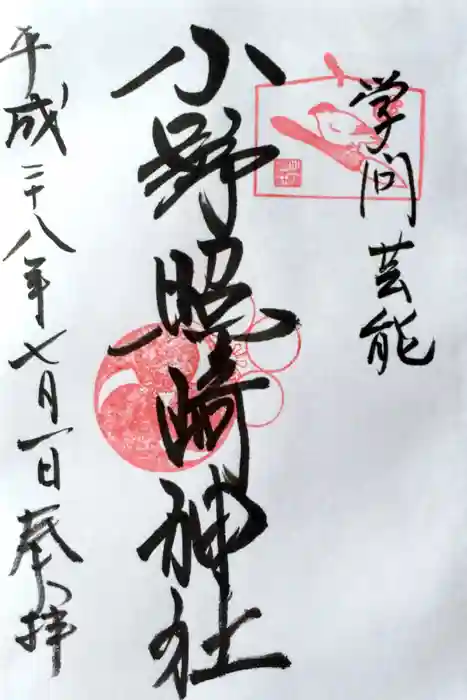 学問 芸能
小野照崎神社
平成二十八年七月一日 奉拝